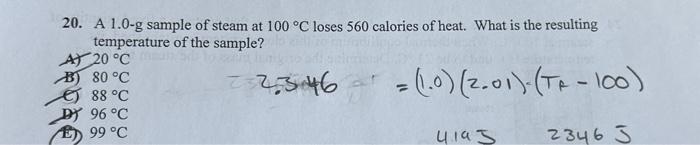 20. A 1.0-g sample of steam at 100 °C loses 560 calories of heat. What is the resulting
temperature of the sample?
A) 20 °C
B) 80 °C
C) 88 °C
D) 96 °C
E) 99 °C
2346 = (1.0)(2.01)·(TF - 100)
4.19J 2346 J